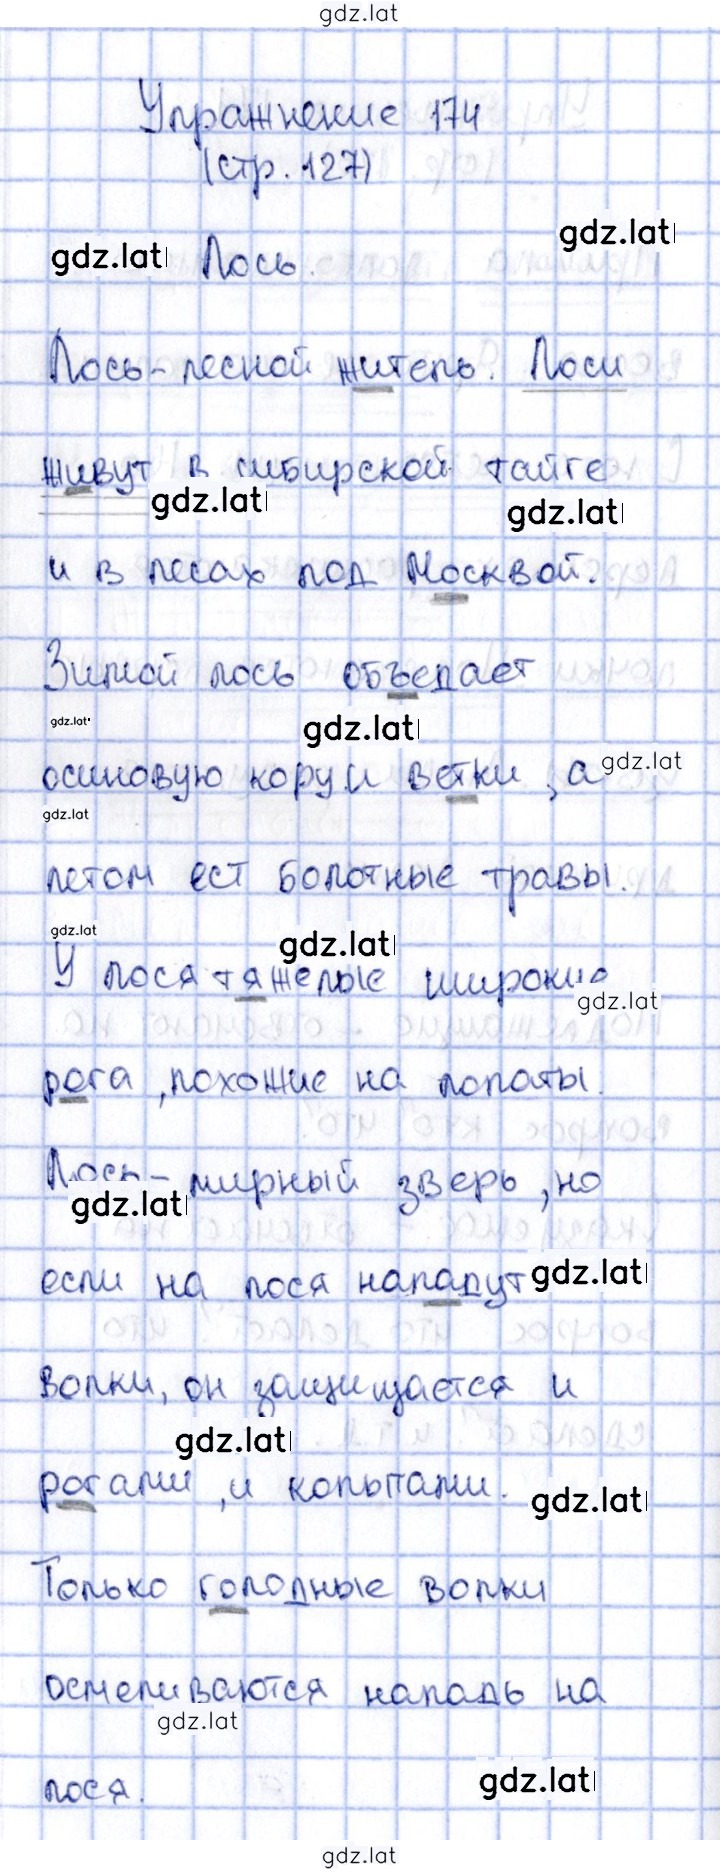 gdz.lat
Упражнение 174
(стр. 127)
gdz.lat
gdz.lat Лось.
Лось - лесной житель. Лоси
живут в сибирской тайге
gdz.lat
gdz.lat
и в лесах под Москвой.
Зимой лось объедает
gdz.lat
gdz.lat
осиновую кору и ветки, а gdz.lat
gdz.lat
летом ест болотные травы.
gdz.lat
gdz.lat
У лося тяжелые широкие
gdz.lat
рога, похожие на лопаты.
Лось - мирный зверь, но
gdz.lat
если на лося нападут gdz.lat
волки, он защищается и
gdz.lat
рогами, и копытами.
gdz.lat
Только голодные волки
осмеливаются нападь на
gdz.lat
лося.
gdz.lat
gdz.lat